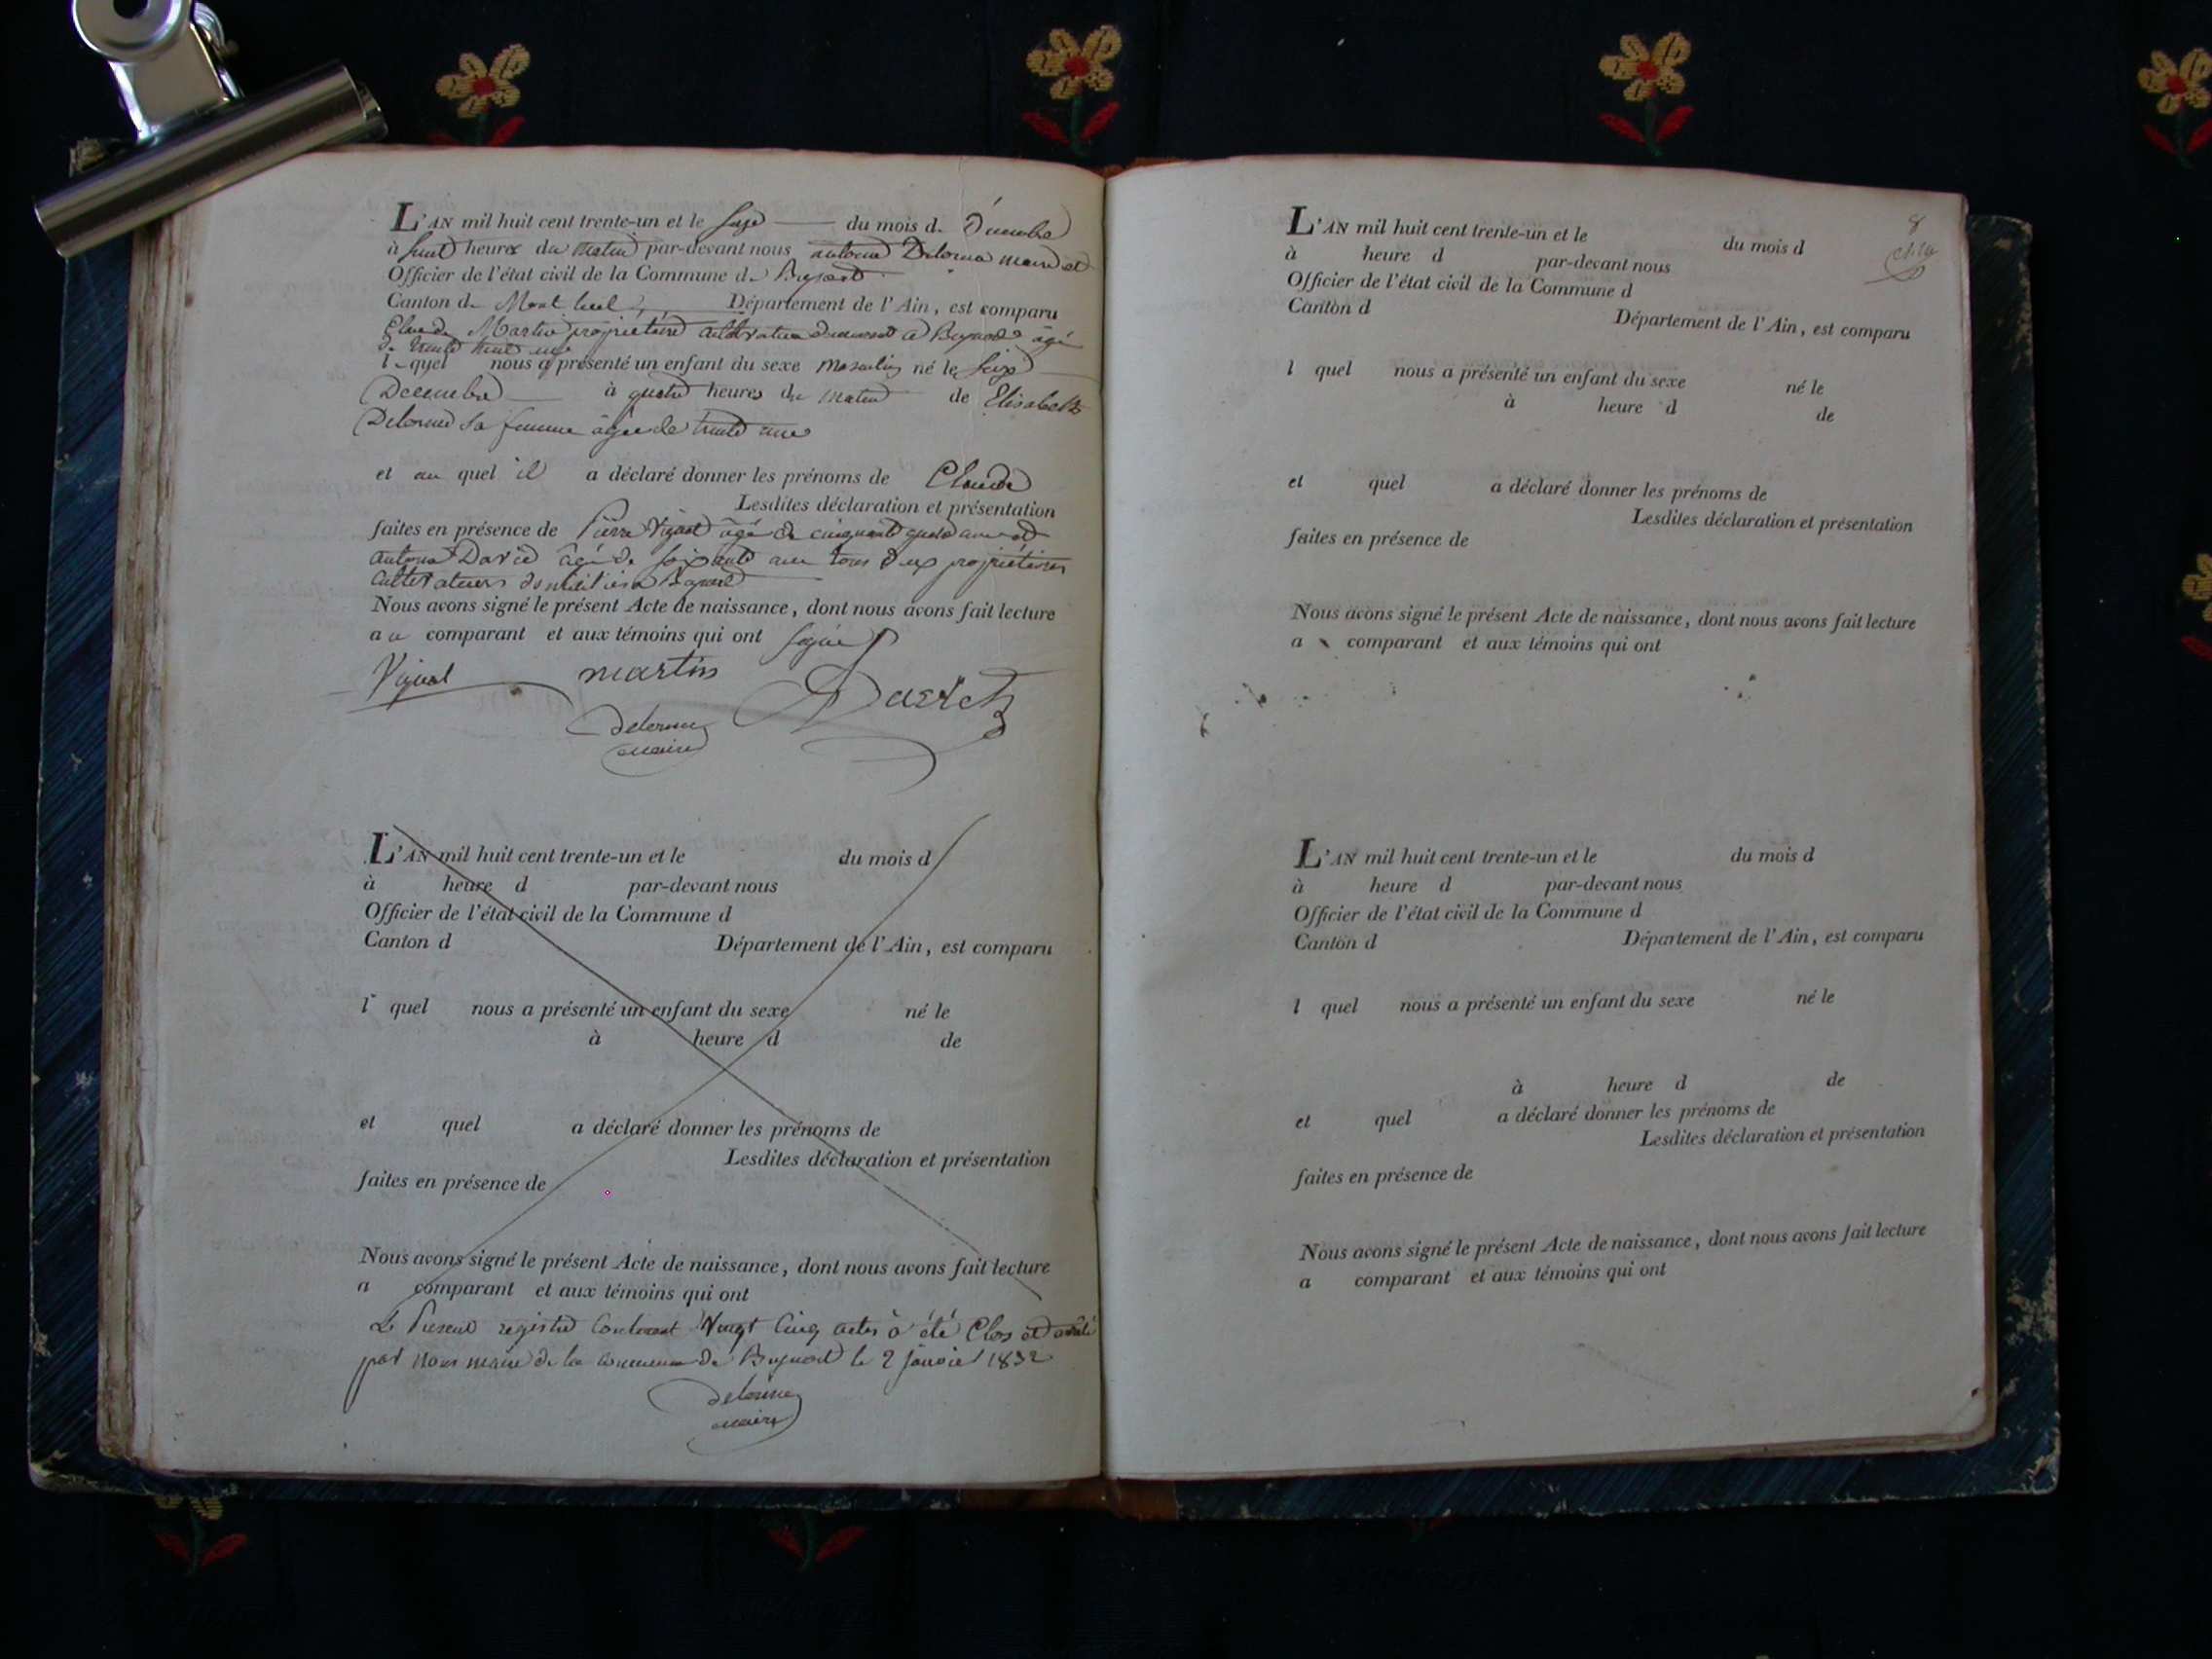 L'AN mil huit cent trente-un et le Seize du mois de Décembre
à huit heures du Matin par-devant nous antoine Delorme maire et
Officier de l'état civil de la Commune de
Canton de Mont luel, Département de l'Ain, est comparu
Claude Martin propriétaire cultivateur demeurant a âgé
de trente huit
lequel nous a présenté un enfant du sexe masculin né le Seize
Decembre à quatre heures du matin de Elisabeth
Delorme sa femme âgée de trente
et au quel il a déclaré donner les prénoms de Claude
Lesdites déclaration et présentation
faites en présence de Pierre Vignat âgé de cinquante quatre ans et
antoine David âgé de soixante ans tous deux propriétaires
cultivateurs domiciliés a
Nous avons signé le présent Acte de naissance, dont nous avons fait lecture
au comparant et aux témoins qui ont signé
martin
David
delorme
maire
L'AN mil huit cent trente-un et le du mois d
à heure d par-devant nous
Officier de l'état civil de la Commune d
Canton d Département de l'Ain, est comparu
l quel nous a présenté un enfant du sexe né le
à heure d de
et quel a déclaré donner les prénoms de
Lesdites déclaration et présentation
faites en présence de
Nous avons signé le présent Acte de naissance, dont nous avons fait lecture
a comparant et aux témoins qui ont
Le Present registre Contenant Vingt Cinq actes à été Clos et arrêté
par nous maire de la commune de le 2 janvier 1832
delorme
maire
8
L'AN mil huit cent trente-un et le du mois d
à heure d par-devant nous
Officier de l'état civil de la Commune d
Canton d Département de l'Ain, est comparu
l quel nous a présenté un enfant du sexe né le
à heure d de
et quel a déclaré donner les prénoms de
Lesdites déclaration et présentation
faites en présence de
Nous avons signé le présent Acte de naissance, dont nous avons fait lecture
a comparant et aux témoins qui ont
L'AN mil huit cent trente-un et le du mois d
à heure d par-devant nous
Officier de l'état civil de la Commune d
Canton d Département de l'Ain, est comparu
l quel nous a présenté un enfant du sexe né le
à heure d de
et quel a déclaré donner les prénoms de
Lesdites déclaration et présentation
faites en présence de
Nous avons signé le présent Acte de naissance, dont nous avons fait lecture
a comparant et aux témoins qui ont